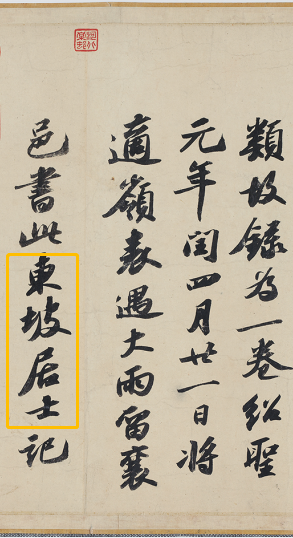 類故錄為一卷紹聖
元年閏四月廿一日將
適嶺表遇大雨留襄
邑書此東坡居士記